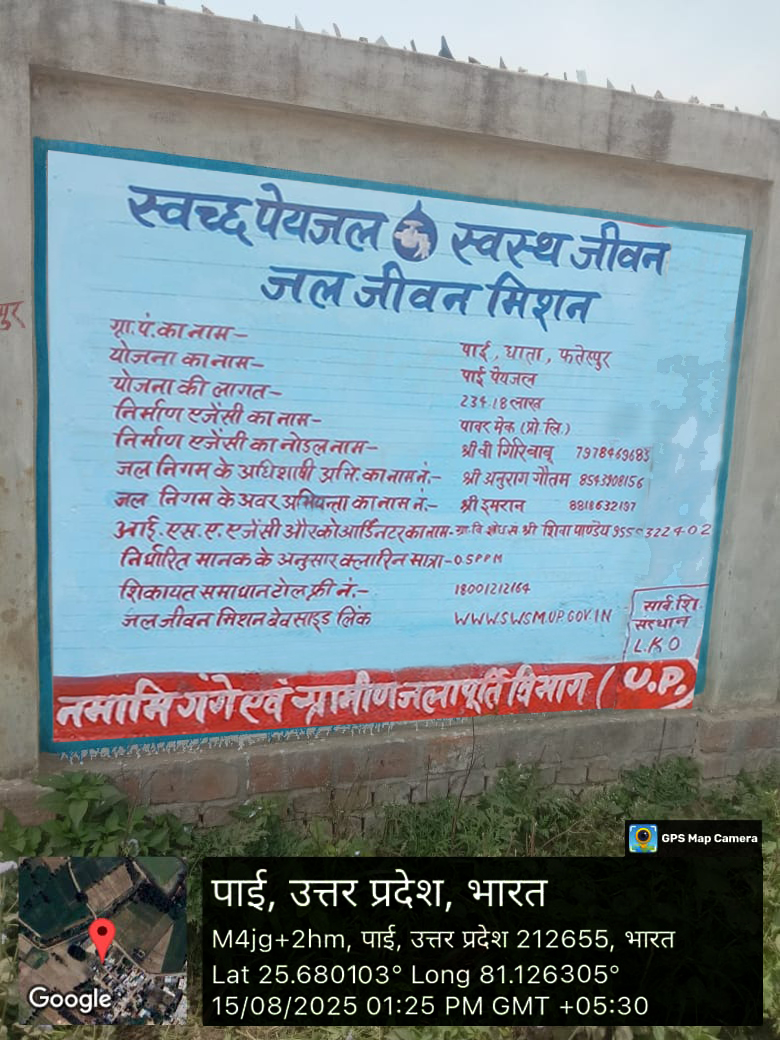 स्वच्छ पेयजल स्वस्थ जीवन
जल जीवन मिशन
ग्रा.पं.का नाम- पाई, धाता, फतेहपुर
योजना का नाम- पाई पेयजल
योजना की लागत- 234.18 लाख
निर्माण एजेंसी का नाम- पावर मेक (प्रो.लि.)
निर्माण एजेंसी का नोडल नाम- श्री वी गिरिबाबू 7978469683
जल निगम के अधिशाषी अभि.का नाम नं.- श्री अनुराग गौतम 8543908156
जल निगम के अवर अभियन्ता का नाम नं.- श्री इमरान 8818632197
आई.एस.ए.एजेंसी और कोआर्डिनटर का नाम- श्री शिवा पाण्डेय 9555322402
निर्धारित मानक के अनुसार क्लारिन मात्रा-0.5PPM
शिकायत समाधान टोल फ्री नं.- 18001212164
जल जीवन मिशन बेवसाइड लिंक WWW.SWSM.UP.GOV.IN
सार्व.शि.
संस्थान
LKO
नमामि गंगे एवं ग्रामीण जलापूर्ति विभाग (U.P.)
पुर
GPS Map Camera
पाई, उत्तर प्रदेश, भारत
M4jg+2hm, पाई, उत्तर प्रदेश 212655, भारत
Lat 25.680103° Long 81.126305°
15/08/2025 01:25 PM GMT +05:30
Google